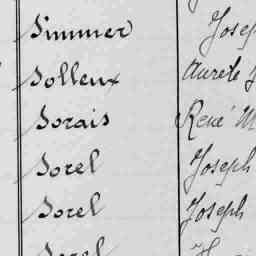 Simmer Josep
Solleux Aurèle J
Sorais René M
Sorel Joseph
Sorel Joseph
Sorel